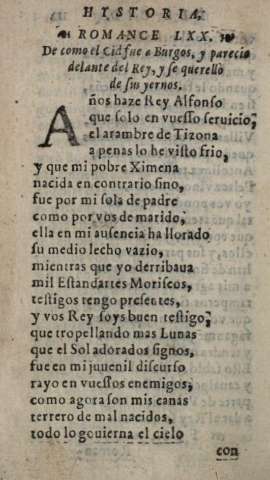 HYSTORIA.
ROMANCE LXX.
De como el Cid fue a Burgos, y parecio
delante del Rey, y se querellò
de sus yernos.
Años haze Rey Alfonso
que solo en vuesso seruicio,
el arambre de Tizona
a penas lo he visto frio,
y que mi pobre Ximena
nacida en contrario sino,
fue por mi sola de padre
como por vos de marido,
ella en mi ausencia ha llorado
su medio lecho vazio,
mientras que yo derribaua
mil Estandartes Moriscos,
testigos tengo presentes,
y vos Rey soys buen testigo,
que tropellando mas Lunas
que el Sol adorados signos,
fue en mi juuenil discurso
rayo en vuessos enemigos,
como agora son mis canas
terrero de mal nacidos,
todo lo gouierna el cielo
con